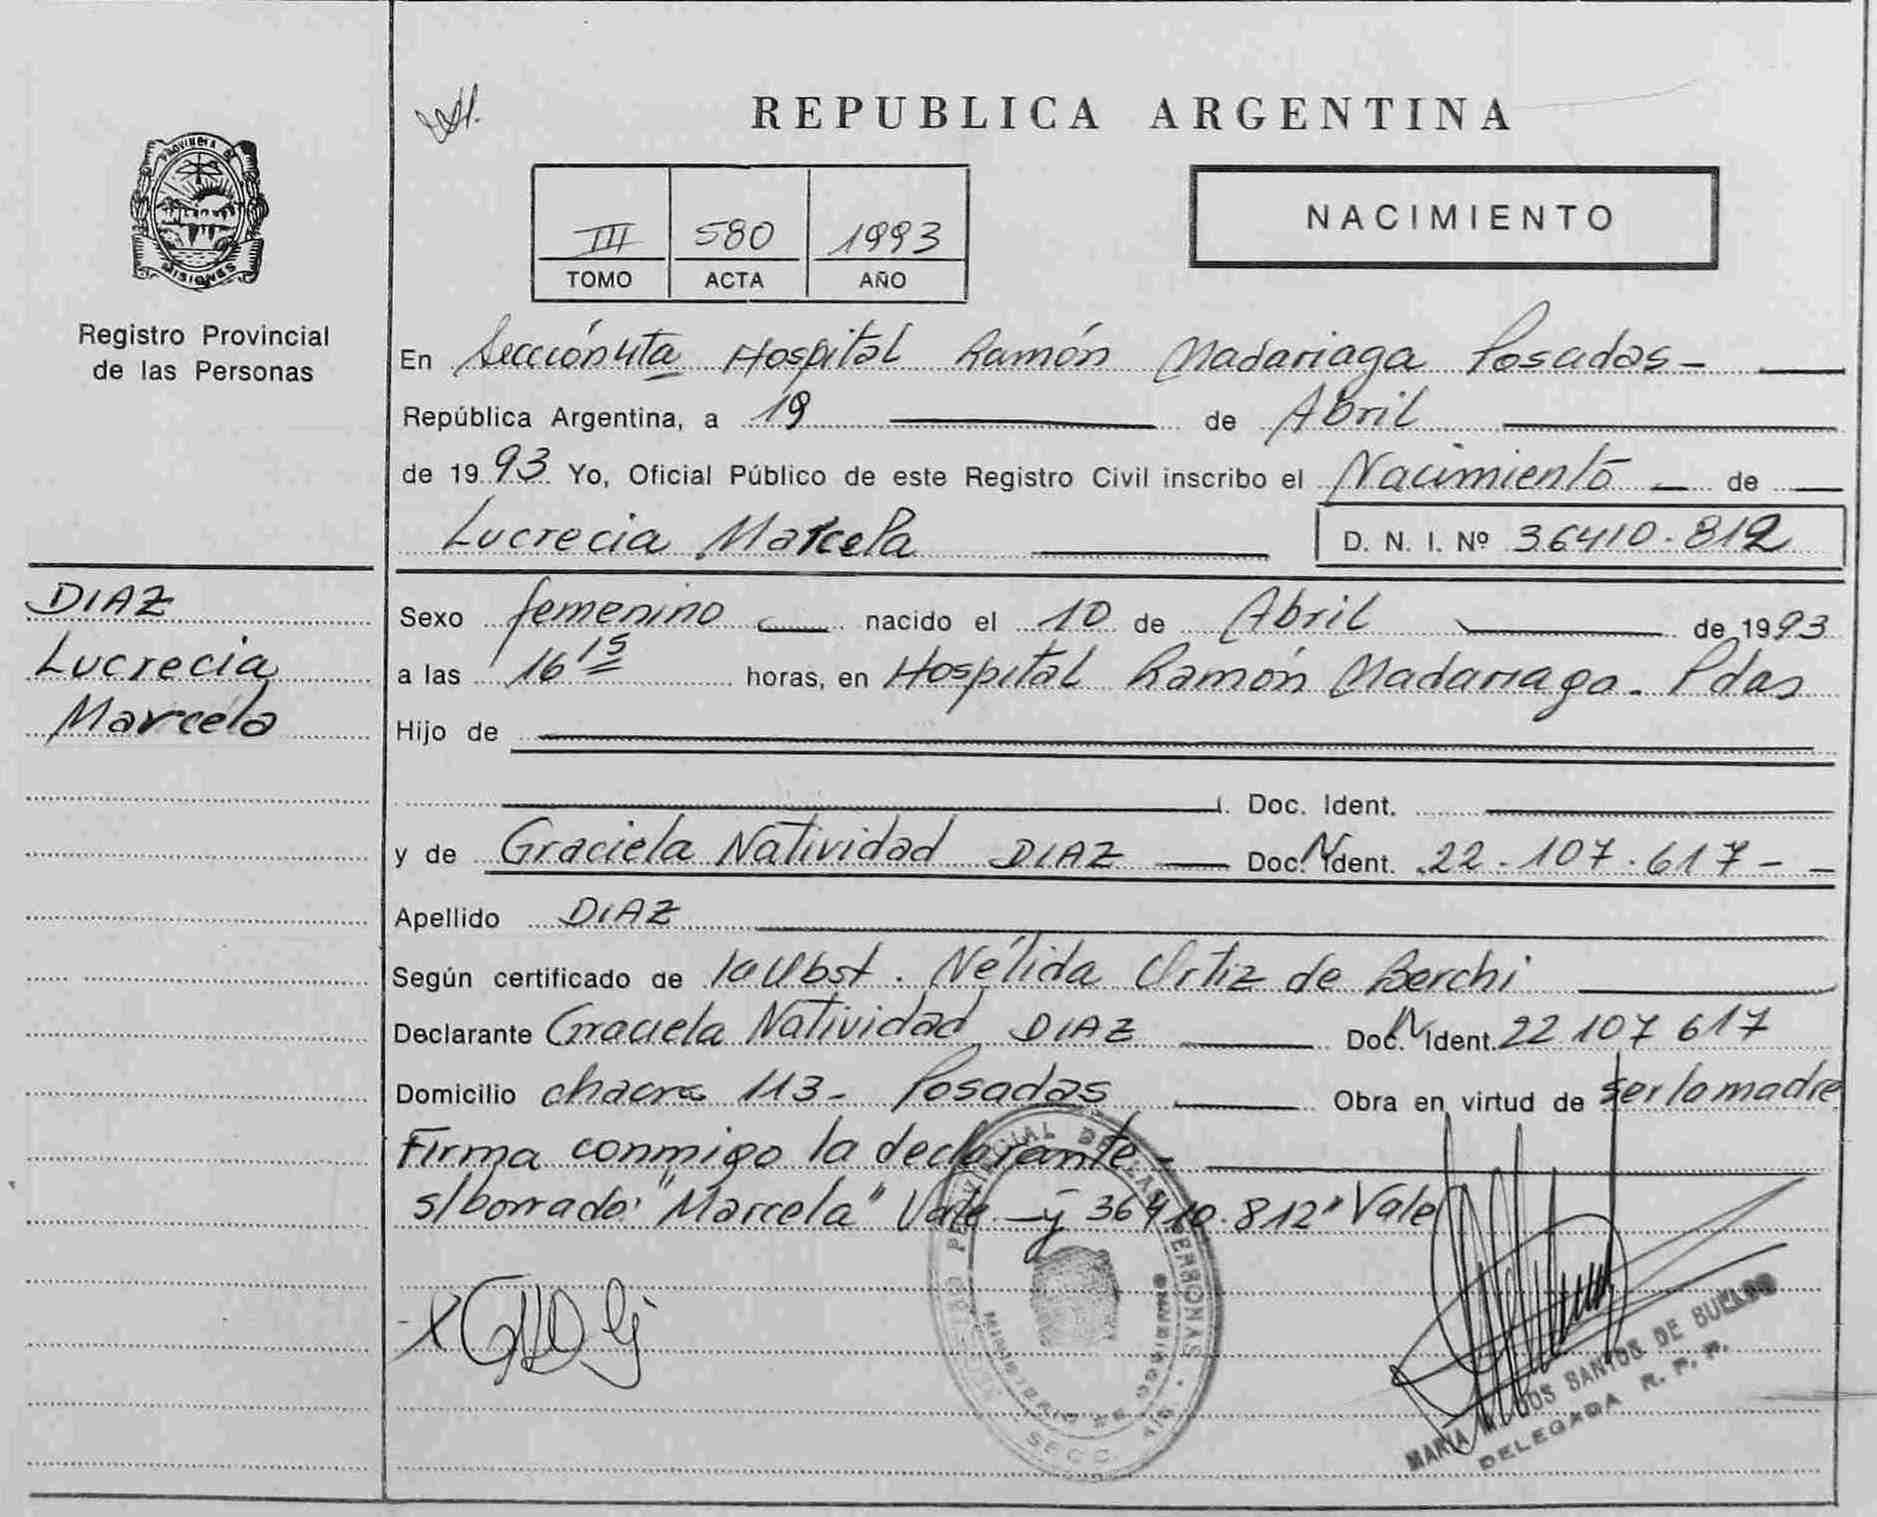 REPUBLICA ARGENTINA
PROVINCIA DE
MISIONES
Registro Provincial
de las Personas
III 580 1993
TOMO ACTA AÑO
NACIMIENTO
En Sección 4ta Hospital Ramón Madariaga Posadas -
República Argentina, a 19 de Abril
de 1993 Yo, Oficial Público de este Registro Civil inscribo el Nacimiento - de
Lucrecia Marcela D. N. I. Nº 36410.812
DIAZ
Lucrecia
Marcela
Sexo femenino nacido el 10 de Abril de 1993
a las 16 15 horas, en Hospital Ramón Madariaga. Pdas
Hijo de
Doc. Ident.
y de Graciela Natividad DIAZ Doc. Ident. 22.107.617 -
Apellido DIAZ
Según certificado de Nélida Ortiz de Berchi
Declarante Graciela Natividad DIAZ Doc. Ident. 22 107 617
Domicilio chacra 113 - Posadas Obra en virtud de ser la madre
Firma conmigo la declarante -
s/borrado: "Marcela" Vale - y 36410.812" Vale
PROVINCIAL DE LAS PERSONAS
MINISTERIO DE GOBIERNO
SECC.
MARIA SANTOS DE BUENOS
DELEGADA R. P. P.